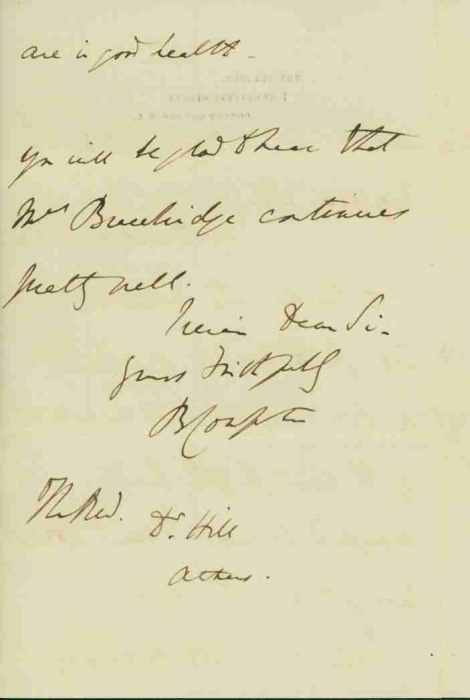 are in good health.
you will be glad to hear that
Mrs Bracebridge continues
pretty well.
Dear Sir
yours faithfully
The Revd. Dr. Hill
Athens.